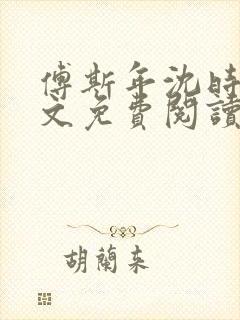 傅斯年沈時
文免費閱讀
胡蘭来